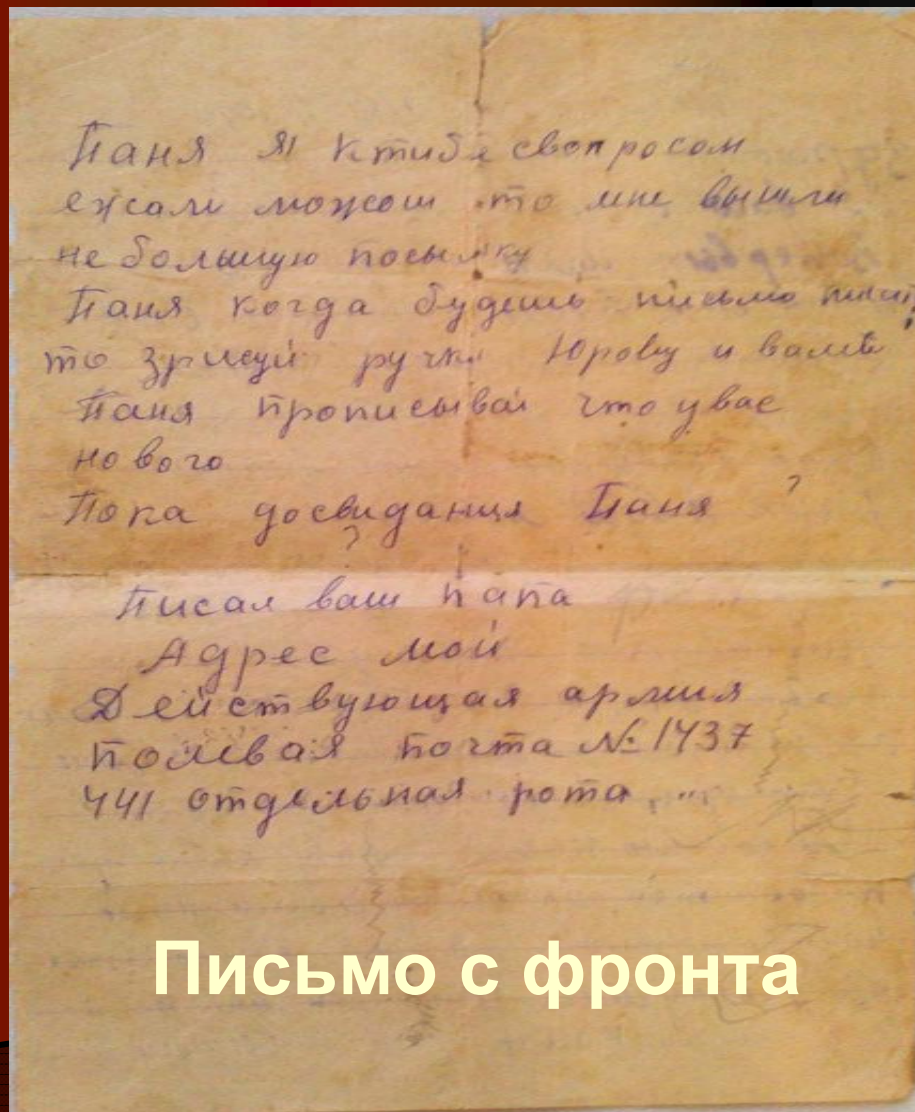 Паня Я ктибе свопросом
ежали можош то мне вышли
не большую посылку
Паня когда будешь письмо писать
то зрисуй ручки Юрову и вали
Паня прописывай что увас
нового
Пока досвиданця Паня
Писал ваш папа
Адрес мой
Действующая армия
Полевая почта № 1437
441 отдельная рота
Письмо с фронта